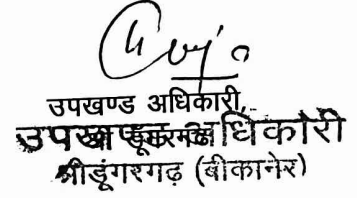 उपखण्ड अधिकारी,
उपखण्ड अधिकारी
श्रीडूंगरगढ़ (बीकानेर)